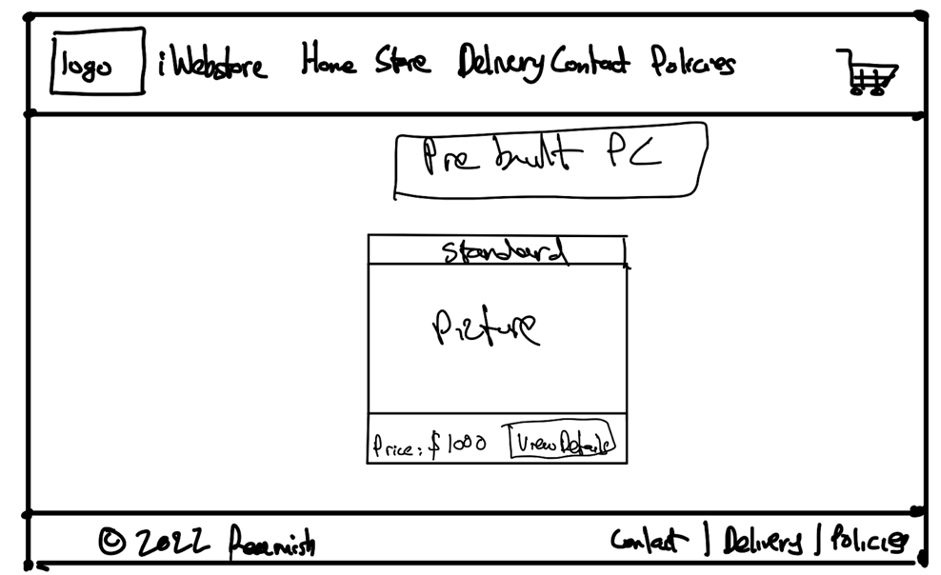 logo iWebstore Home Store Delivery Contact Policies
Pre built PC
Standard
Picture
Price: $1000 View Details
© 2022 Contact | Delivery | Policies